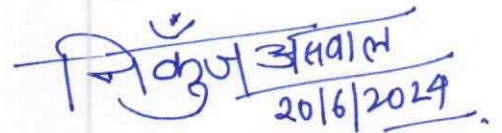 निकुँज अग्रवाल
20/6/2024